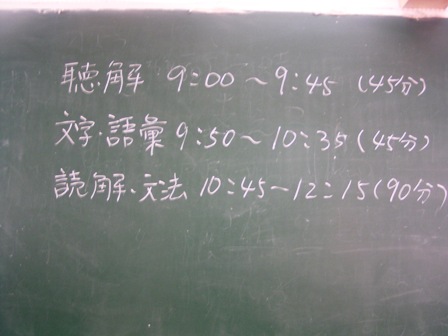 聴解 9:00～9:45 (45分)
文字・語彙 9:50～10:35 (45分)
読解・文法 10:45-12:15(90分)